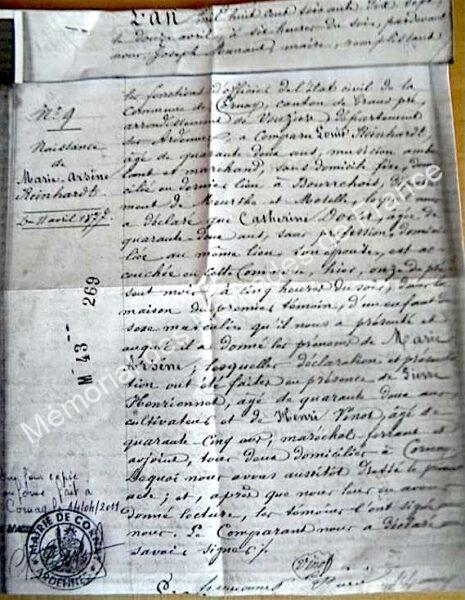 L'an mil huit cent soixante dix sept
le douze avril à dix heures du soir, par devant
nous Joseph maire, remplissant
les fonctions d'officier de l'état civil de la
Commune de Cornay, canton de Grand pré,
arrondissement de Vouziers département
des Ardennes, a comparu Louis Reinhardt
âgé de quarante deux ans, musicien ambu
lant et marchand, sans domicile fixe, domi
cilié en dernier lieu à
ment de Meurthe et Moselle, lequel nous
a déclaré que Catherine âgée de
quarante deux ans, sans profession, domici
liée au même lieu son épouse, est ac
couchée en cette Commune, hier, onze du pré
sent mois, à cinq heures du soir, dans la
maison du premier témoin, d'un enfant du
sexe masculin qu'il nous a présenté et
auquel il a donné les prénoms de Marie
Arsène; lesquelles déclaration et présenta
tion ont été faites en présence de Pierre
Henrionnet, âgé de quarante deux ans
cultivateur et de Henri Vinot, âgé de
quarante cinq ans, maréchal-ferrant et
adjoint, tous deux domiciliés à Cornay
Desquels nous avons aussitôt dressé le présent
acte; et, après que nous leur en avons
donné lecture, les témoins l'ont signé
nous. Le Comparant nous a déclaré
savoir signer.
Vinot
Henrionnet
N° 9
Naissance
de
Marie Arsène
Reinhardt
11 avril 1877
M 43 269
Pour copie
conforme fait à
Cornay le 14/04/2011
MAIRIE DE CORNAY
ARDENNES